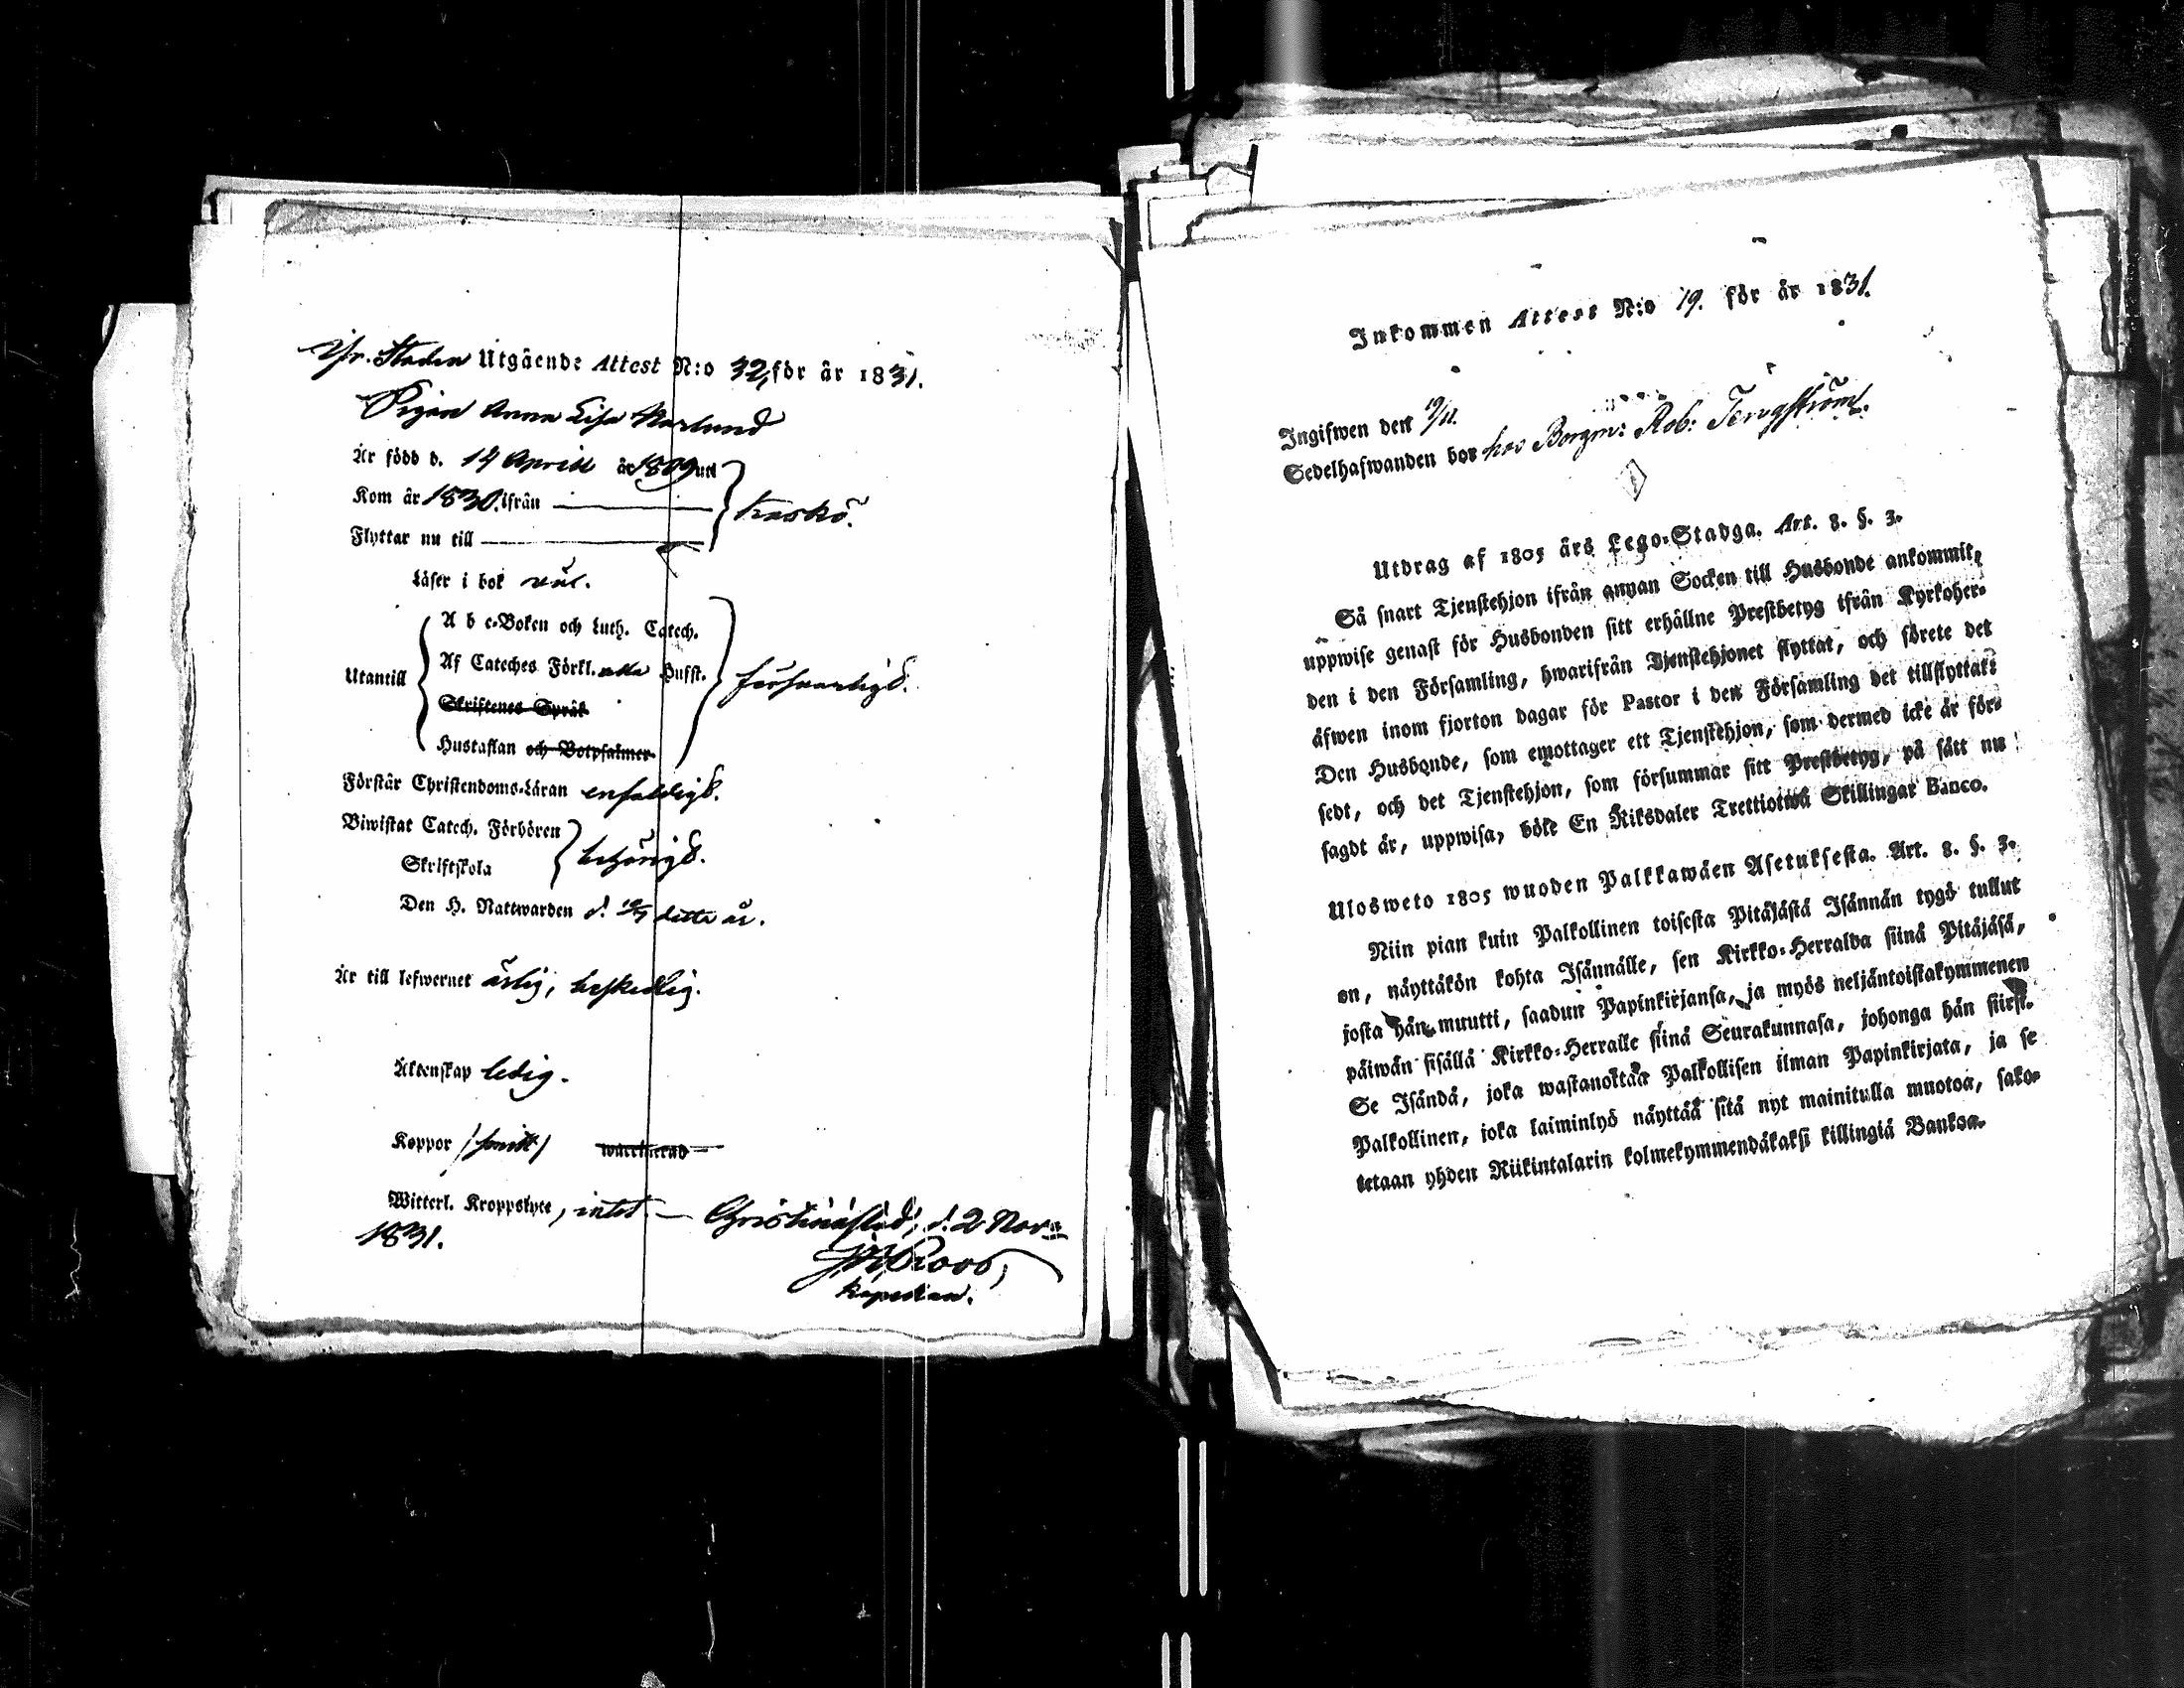 Fr. Staden Utgående Attest N:o 32, för år 1831.
Pigan Anna Lisa Norlund
Är född d. 14 Aprill år 1809 uti
Kom år 1830. ifrån
Kaskö.
Flyttar nu till
Läser i bok väl.
Utantill
A b c-Boken och Luth. Catech.
Af Cateches Förkl. alla Hufst.
försvarligt.
Skriftenes Språk
Hustaflan och Botpsalmer
Förstår Christendoms-Läran enfaldigt.
Biwistat Catech. Förhören
Skriftskola
behörigt.
Den H. Nattwarden d. detta år.
Är till lefwernet ärlig, beskedlig.
Äktenskap ledig.
Koppor /haft/ waccinerad
Witterl. Kroppslyte, intet. — Christinæstad, d. 2 Nov:
1831.
Roos,
Kapellan.
Inkommen Attest N:o 19. för år 1831.
Ingifwen den 19/11.
Sedelhafwanden bor hos Borgm: Rob: Tengström.
Utdrag af 1805 års Lego-Stadga. Art. 8. §. 3.
Så snart Tjenstehjon ifrån annan Socken till Husbonde ankommit,
uppwise genast för Husbonden sitt erhållne Prestbetyg ifrån Kyrkoher-
den i den Församling, hwarifrån Tjenstehjonet flyttat, och förete det
äfwen inom fjorton dagar för Pastor i den Församling det tillflyttat:
Den Husbonde, som emottager ett Tjenstehjon, som dermed icke är för-
sedt, och det Tjenstehjon, som försummar sitt Prestbetyg, på sätt nu
sagdt är, uppwisa, böte En Riksdaler Trettiotwå Skillingar Banco.
Ulosweto 1805 wuoden Palkkawäen Asetuksesta. Art. 8. §. 3.
Niin pian kuin Palkollinen toisesta Pitäjästä Isännän tygö tullut
on, näyttäkön kohta Isännälle, sen Kirkko-Herralda siinä Pitäjäsä,
josta hän muutti, saadun Papinkirjansa, ja myös neljäntoistakymmenen
päiwän sisällä Kirkko-Herralle siinä Seurakunnasa, johonga hän siirst.
Se Isändä, joka wastanottaa Palkollisen ilman Papinkirjata, ja se
Palkollinen, joka laiminlyö näyttää sitä nyt mainitulla muotoa, sako-
tetaan yhden Riikintalarin kolmekymmendäkaksi killingiä Bankoa.